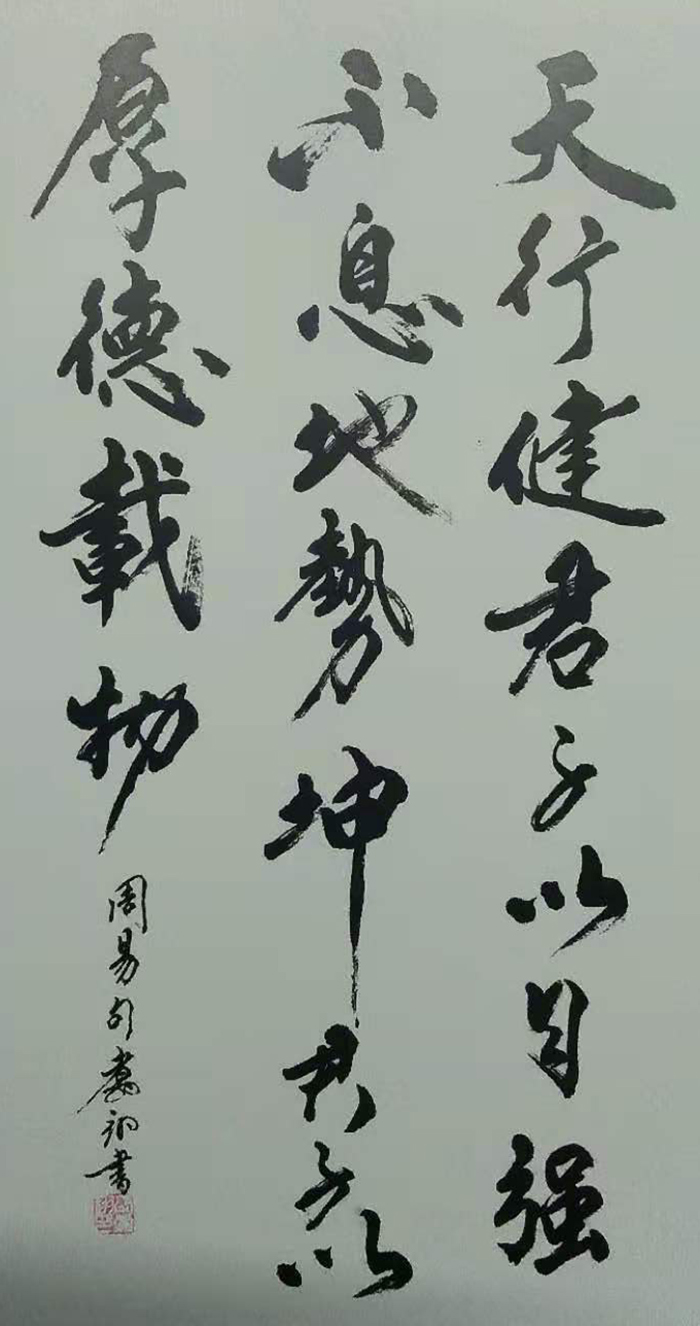 天行健君子以自强
不息地勢坤君子以
厚德載物
周易句 書